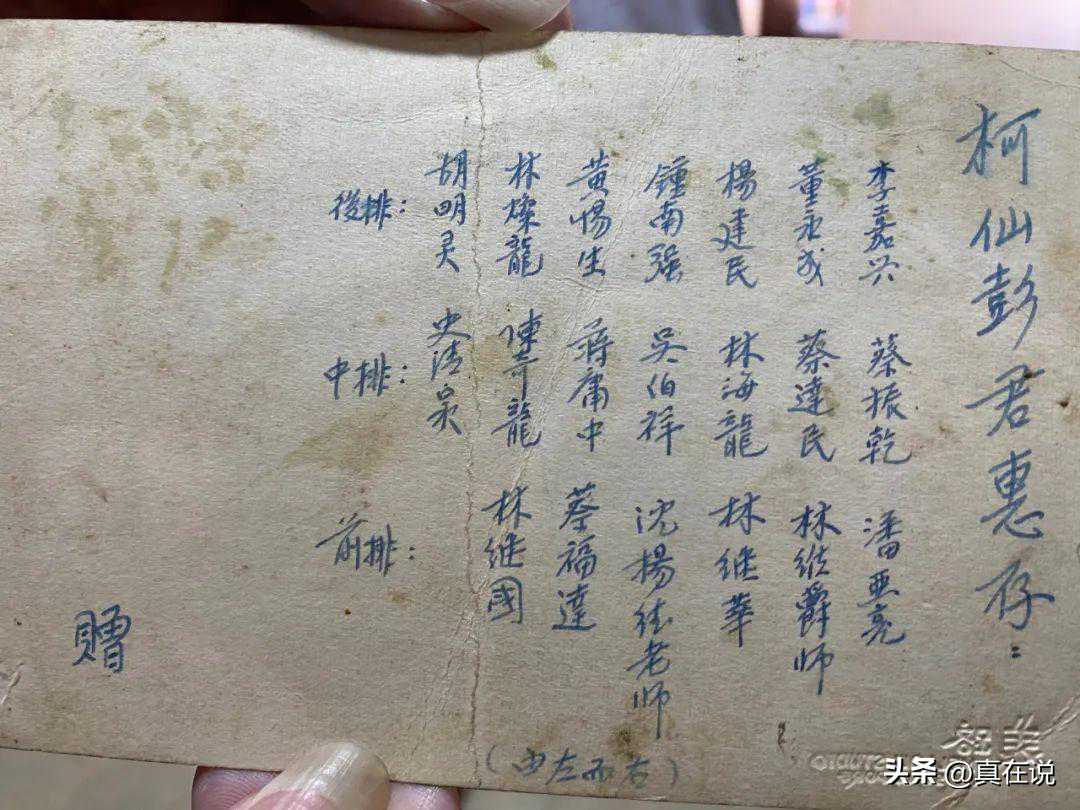 柯仙彭君惠存：
後排：胡明灵 林燦龍 黄惕生 鍾南强 楊建民 董永成 李嘉兴
中排：史清泉 陳奇龍 蒋庸中 吴伯祥 林海龍 蔡達民 蔡振乾
前排：林继國 蔡福達 沈楊老师 林继華 林爵师 潘亚亮
（由左而右）
贈
头条 @真在说